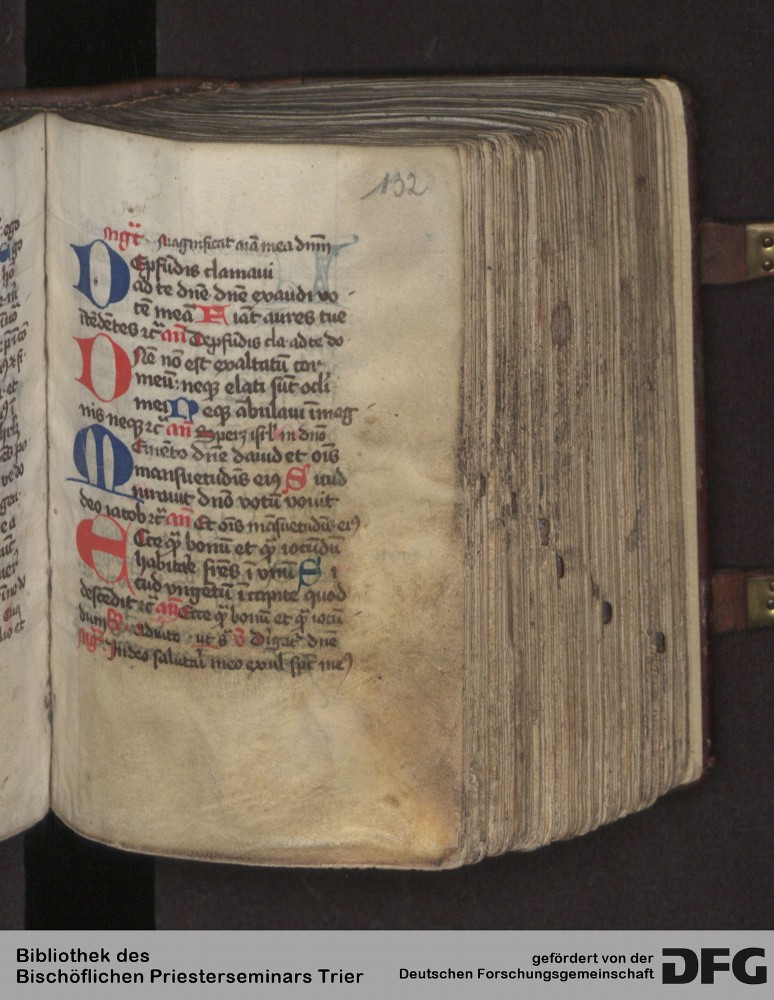 132
mgt̄ Magnificat aīa mea dn̄m
DE pfūdis clamaui
ad te dn̄e dn̄e exaudi vo
cē meā Fiāt aures tue
ītēdētes ⁊c̄ an̄ De pfūdis cla· ad te do·
DNe nō est exaltatū cor
meū: neqꝫ elati sūt ocli
mei Neqꝫ ābulaui ī mag
nis neqꝫ ⁊c̄ an̄ Speret isrl' in dn̄o
MEmēto dn̄e dauid et oīs
mansuetudīs eiꝰ Sicud
iurauit dn̄o votū vouit
deo iacob ⁊c̄ an̄ Et oīs māsuetudīs eiꝰ
ECce qͣ bonū et qͣ iocūdū
habitare frēs ī vnū Si
cud vngētū ī capite quod
descēdit ⁊c an̄ Ecce qͣ bonū et qͣ iocū
dum
In deo salutari meo exul· spc̄ meꝰ
Bibliothek des
Bischöflichen Priesterseminars Trier
gefördert von der
Deutschen Forschungsgemeinschaft
DFG